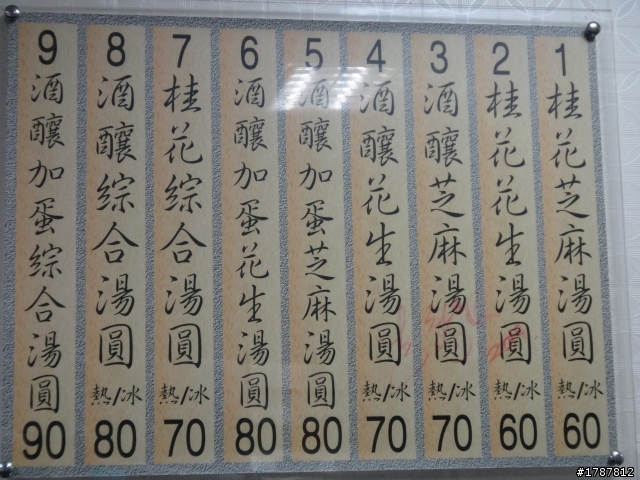 1 桂花芝麻湯圓 熱/冰 60
2 桂花花生湯圓 熱/冰 60
3 酒釀芝麻湯圓 熱/冰 70
4 酒釀花生湯圓 熱/冰 70
5 酒釀加蛋芝麻湯圓 80
6 酒釀加蛋花生湯圓 80
7 桂花綜合湯圓 熱/冰 70
8 酒釀綜合湯圓 熱/冰 80
9 酒釀加蛋綜合湯圓 90
#1787812